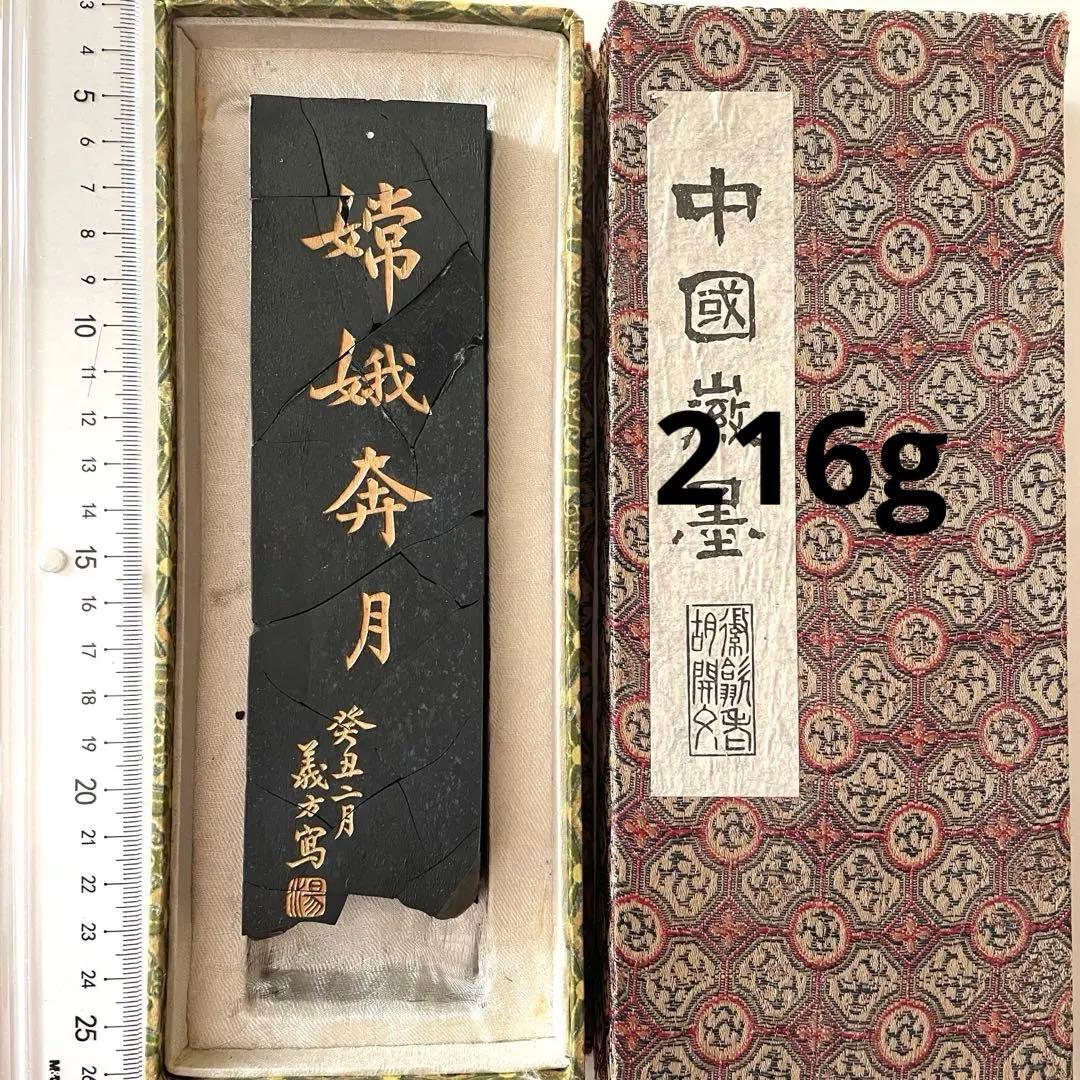 嫦娥奔月
癸丑二月
義方寫
湯
中國徽墨
216g
徽歙老
胡開文
3
4
5
6
7
8
9
10
11
12
13
14
15
16
17
18
19
20
21
22
23
24
25
26